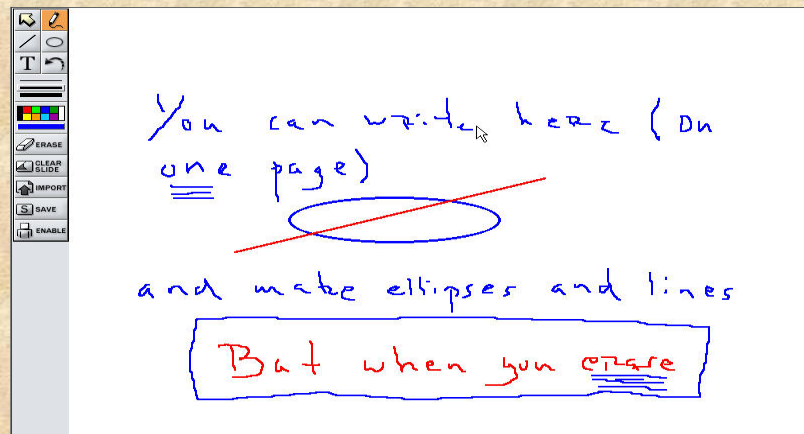 T
ERASE
CLEAR SLIDE
IMPORT
S SAVE
ENABLE
You can write here (on
one page)
and make ellipses and lines
But when you erase